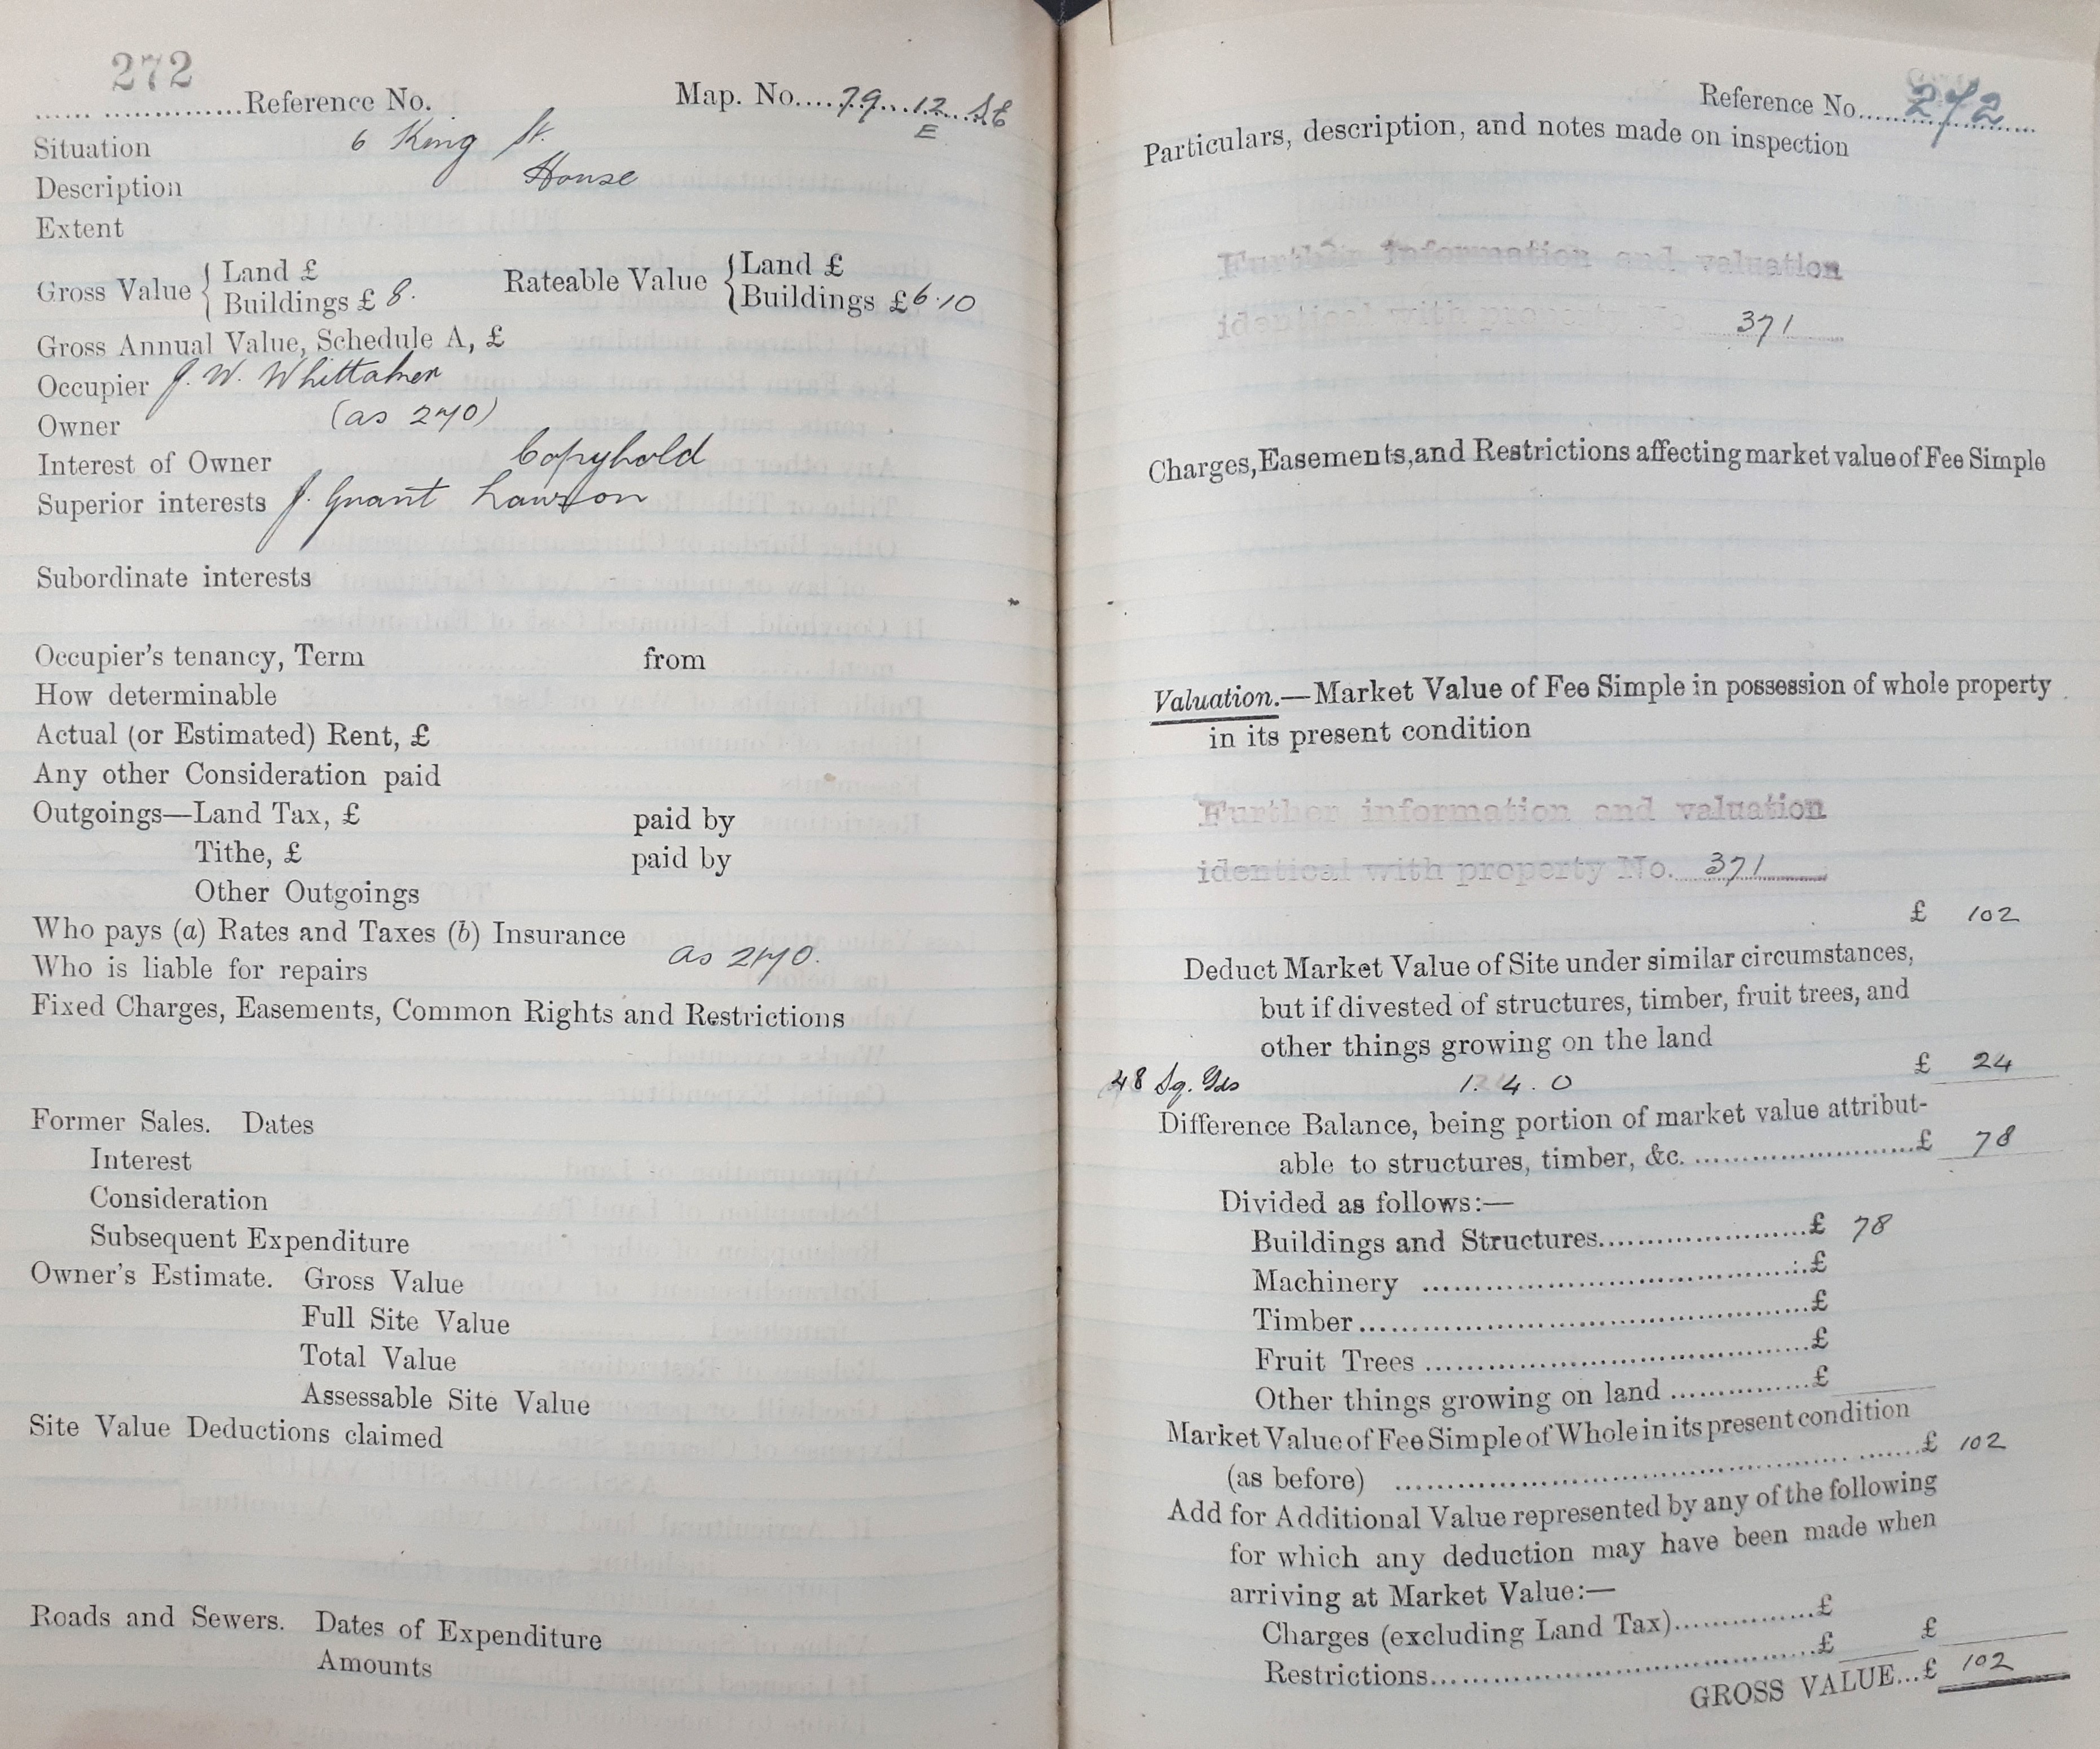 272
...... ..............Reference No. Map. No....79...12...St
E
Situation 6 King St.
Description House
Extent
Gross Value { Land £
Buildings £ 8. Rateable Value { Land £
Buildings £6.10
Gross Annual Value, Schedule A, £
Occupier J. W. Whittaker
Owner (as 270)
Interest of Owner Copyhold
Superior interests J. Grant Lawson
Subordinate interests
Occupier's tenancy, Term from
How determinable
Actual (or Estimated) Rent, £
Any other Consideration paid
Outgoings—Land Tax, £ paid by
Tithe, £ paid by
Other Outgoings
Who pays (a) Rates and Taxes (b) Insurance
Who is liable for repairs as 270.
Fixed Charges, Easements, Common Rights and Restrictions
Former Sales. Dates
Interest
Consideration
Subsequent Expenditure
Owner's Estimate. Gross Value
Full Site Value
Total Value
Assessable Site Value
Site Value Deductions claimed
Roads and Sewers. Dates of Expenditure
Amounts
Reference No....272
Particulars, description, and notes made on inspection
Further information and valuation
identical with property No. 371
Charges, Easements, and Restrictions affecting market value of Fee Simple
Valuation.—Market Value of Fee Simple in possession of whole property
in its present condition
Further information and valuation
identical with property No. 371
£ 102
Deduct Market Value of Site under similar circumstances,
but if divested of structures, timber, fruit trees, and
other things growing on the land
48 Sq. Yds 1. 4. 0 £ 24
Difference Balance, being portion of market value attribut-
able to structures, timber, &c. ........................£ 78
Divided as follows:—
Buildings and Structures......................£ 78
Machinery ........................................£
Timber..............................................£
Fruit Trees ........................................£
Other things growing on land ...............£
Market Value of Fee Simple of Whole in its present condition
(as before) ................................................£ 102
Add for Additional Value represented by any of the following
for which any deduction may have been made when
arriving at Market Value:—
Charges (excluding Land Tax)...............£
Restrictions.......................................£ £
GROSS VALUE...£ 102